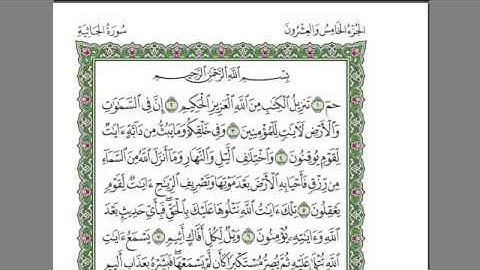 الجزء الخامس والعشرون
سورة الجاثية
بِسْمِ اللَّهِ الرَّحْمَٰنِ الرَّحِيمِ
حمٓ ١ تَنزِيلُ الْكِتَٰبِ مِنَ اللَّهِ الْعَزِيزِ الْحَكِيمِ ٢ إِنَّ فِي السَّمَٰوَٰتِ
وَالْأَرْضِ لَءَايَٰتٍ لِّلْمُؤْمِنِينَ ٣ وَفِي خَلْقِكُمْ وَمَا يَبُثُّ مِن دَآبَّةٍ ءَايَٰتٌ
لِّقَوْمٍ يُوقِنُونَ ٤ وَاخْتِلَٰفِ الَّيْلِ وَالنَّهَارِ وَمَآ أَنزَلَ اللَّهُ مِنَ السَّمَآءِ
مِن رِّزْقٍ فَأَحْيَا بِهِ الْأَرْضَ بَعْدَ مَوْتِهَا وَتَصْرِيفِ الرِّيَٰحِ ءَايَٰتٌ لِّقَوْمٍ
يَعْقِلُونَ ٥ تِلْكَ ءَايَٰتُ اللَّهِ نَتْلُوهَا عَلَيْكَ بِالْحَقِّ فَبِأَيِّ حَدِيثٍ بَعْدَ
اللَّهِ وَءَايَٰتِهِ يُؤْمِنُونَ ٦ وَيْلٌ لِّكُلِّ أَفَّاكٍ أَثِيمٍ ٧ يَسْمَعُ ءَايَٰتِ
اللَّهِ تُتْلَىٰ عَلَيْهِ ثُمَّ يُصِرُّ مُسْتَكْبِرًا كَأَن لَّمْ يَسْمَعْهَا فَبَشِّرْهُ بِعَذَابٍ أَلِيمٍ